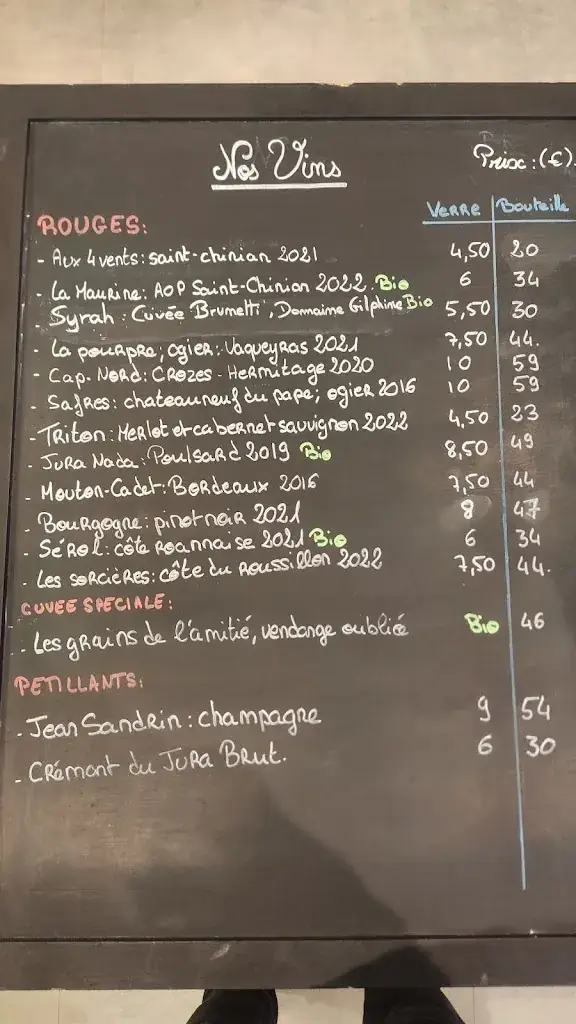 Nos Vins
Prix : (€).
VERRE Bouteille
ROUGES:
- Aux 4 vents: saint-chinian 2021 4,50 20
- La Maurine: AOP Saint-Chinian 2022. Bio 6 34
- Syrah : Cuvée Brumetti, Domaine Gilphine Bio 5,50 30
- La pourpre; ogier: Vaqueyras 2021 7,50 44.
- Cap. Nord: CROZES-Hermitage 2020 10 59
- Safres: chateauneuf du pape; ogier 2016 10 59
- Triton: Merlot et cabernet sauvignon 2022 4,50 23
- Jura Nada: Poulsard 2019 Bio 8,50 49
- Mouton-Cadet: Bordeaux 2016 7,50 44
- Bourgogne: pinot noir 2021 8 47
- Sérol: côte roannaise 2021 Bio 6 34
- Les sorcières: côte du roussillon 2022 7,50 44.
CUVEE SPECIALE:
- Les grains de l'amitié, vendange oubliée Bio 46
PETILLANTS:
- Jean Sandrin: champagne 9 54
- Crémant du Jura Brut. 6 30